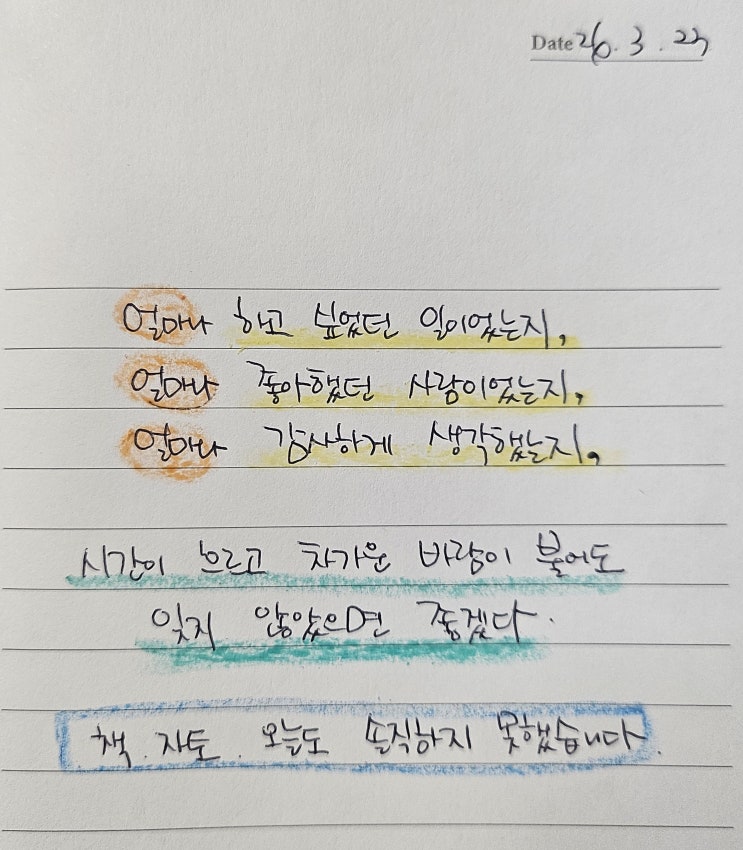 Date 26. 3. 23
얼마나 하고 싶었던 일이었는지,
얼마나 좋아했던 사람이었는지,
얼마나 감사하게 생각했는지,
시간이 흐르고 차가운 바람이 불어도
잊지 않았으면 좋겠다.
책. 자토. 오늘도 솔직하지 못했습니다.